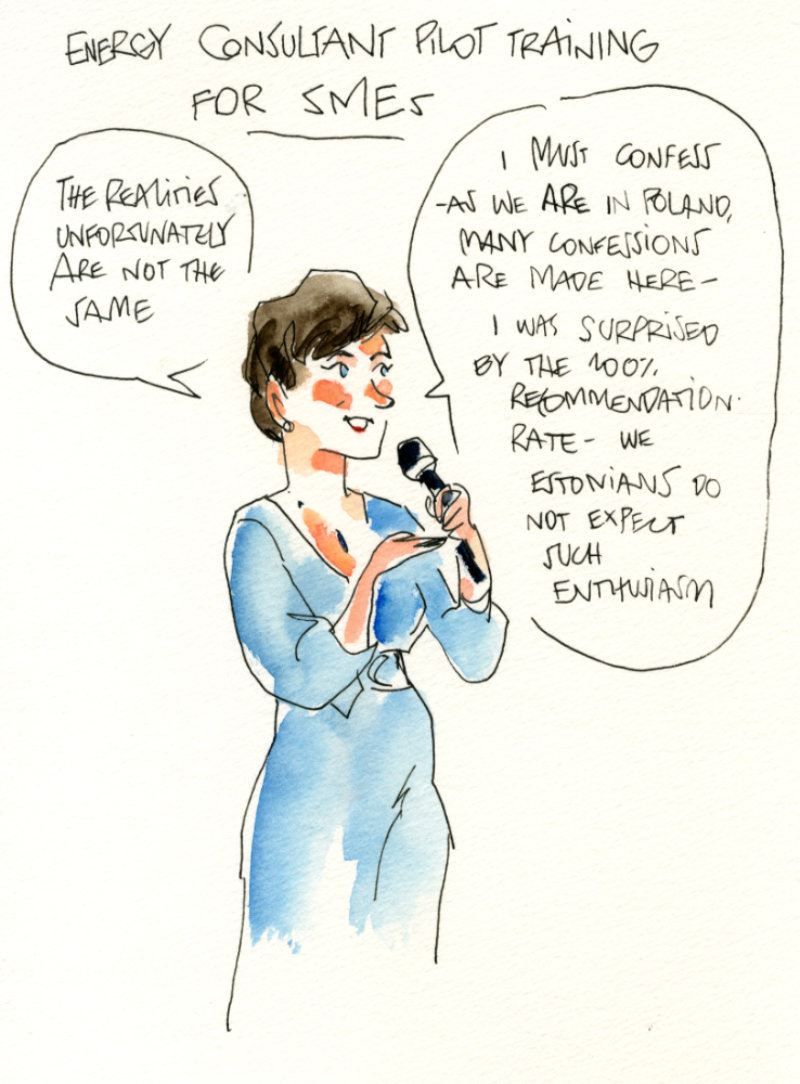 ENERGY CONSULTANT PILOT TRAINING
FOR SMEs
THE REALITIES
UNFORTUNATELY
ARE NOT THE
SAME
I MUST CONFESS
-AS WE ARE IN POLAND,
MANY CONFESSIONS
ARE MADE HERE-
I WAS SURPRISED
BY THE 100%
RECOMMENDATION
RATE- WE
ESTONIANS DO
NOT EXPECT
SUCH
ENTHUSIASM